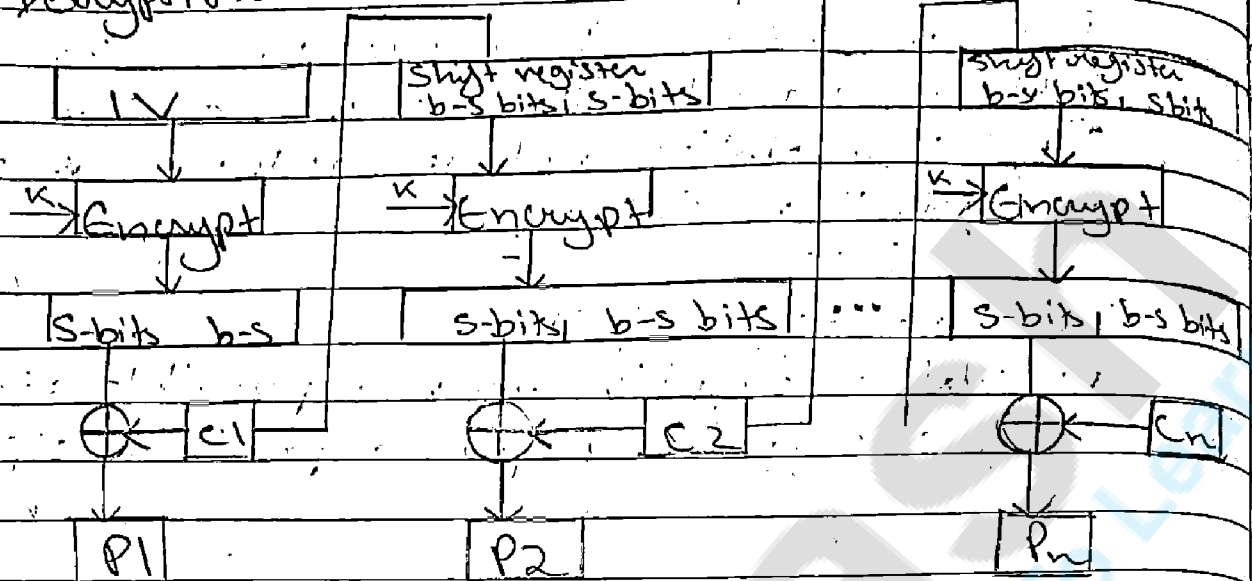 IV
Shift register
b-s bits, s-bits
Shift register
b-s bits, s bits
K Encrypt
K Encrypt
K Encrypt
S-bits b-s
s-bits, b-s bits
...
s-bits, b-s bits
C1
C2
Cn
P1
P2
Pn